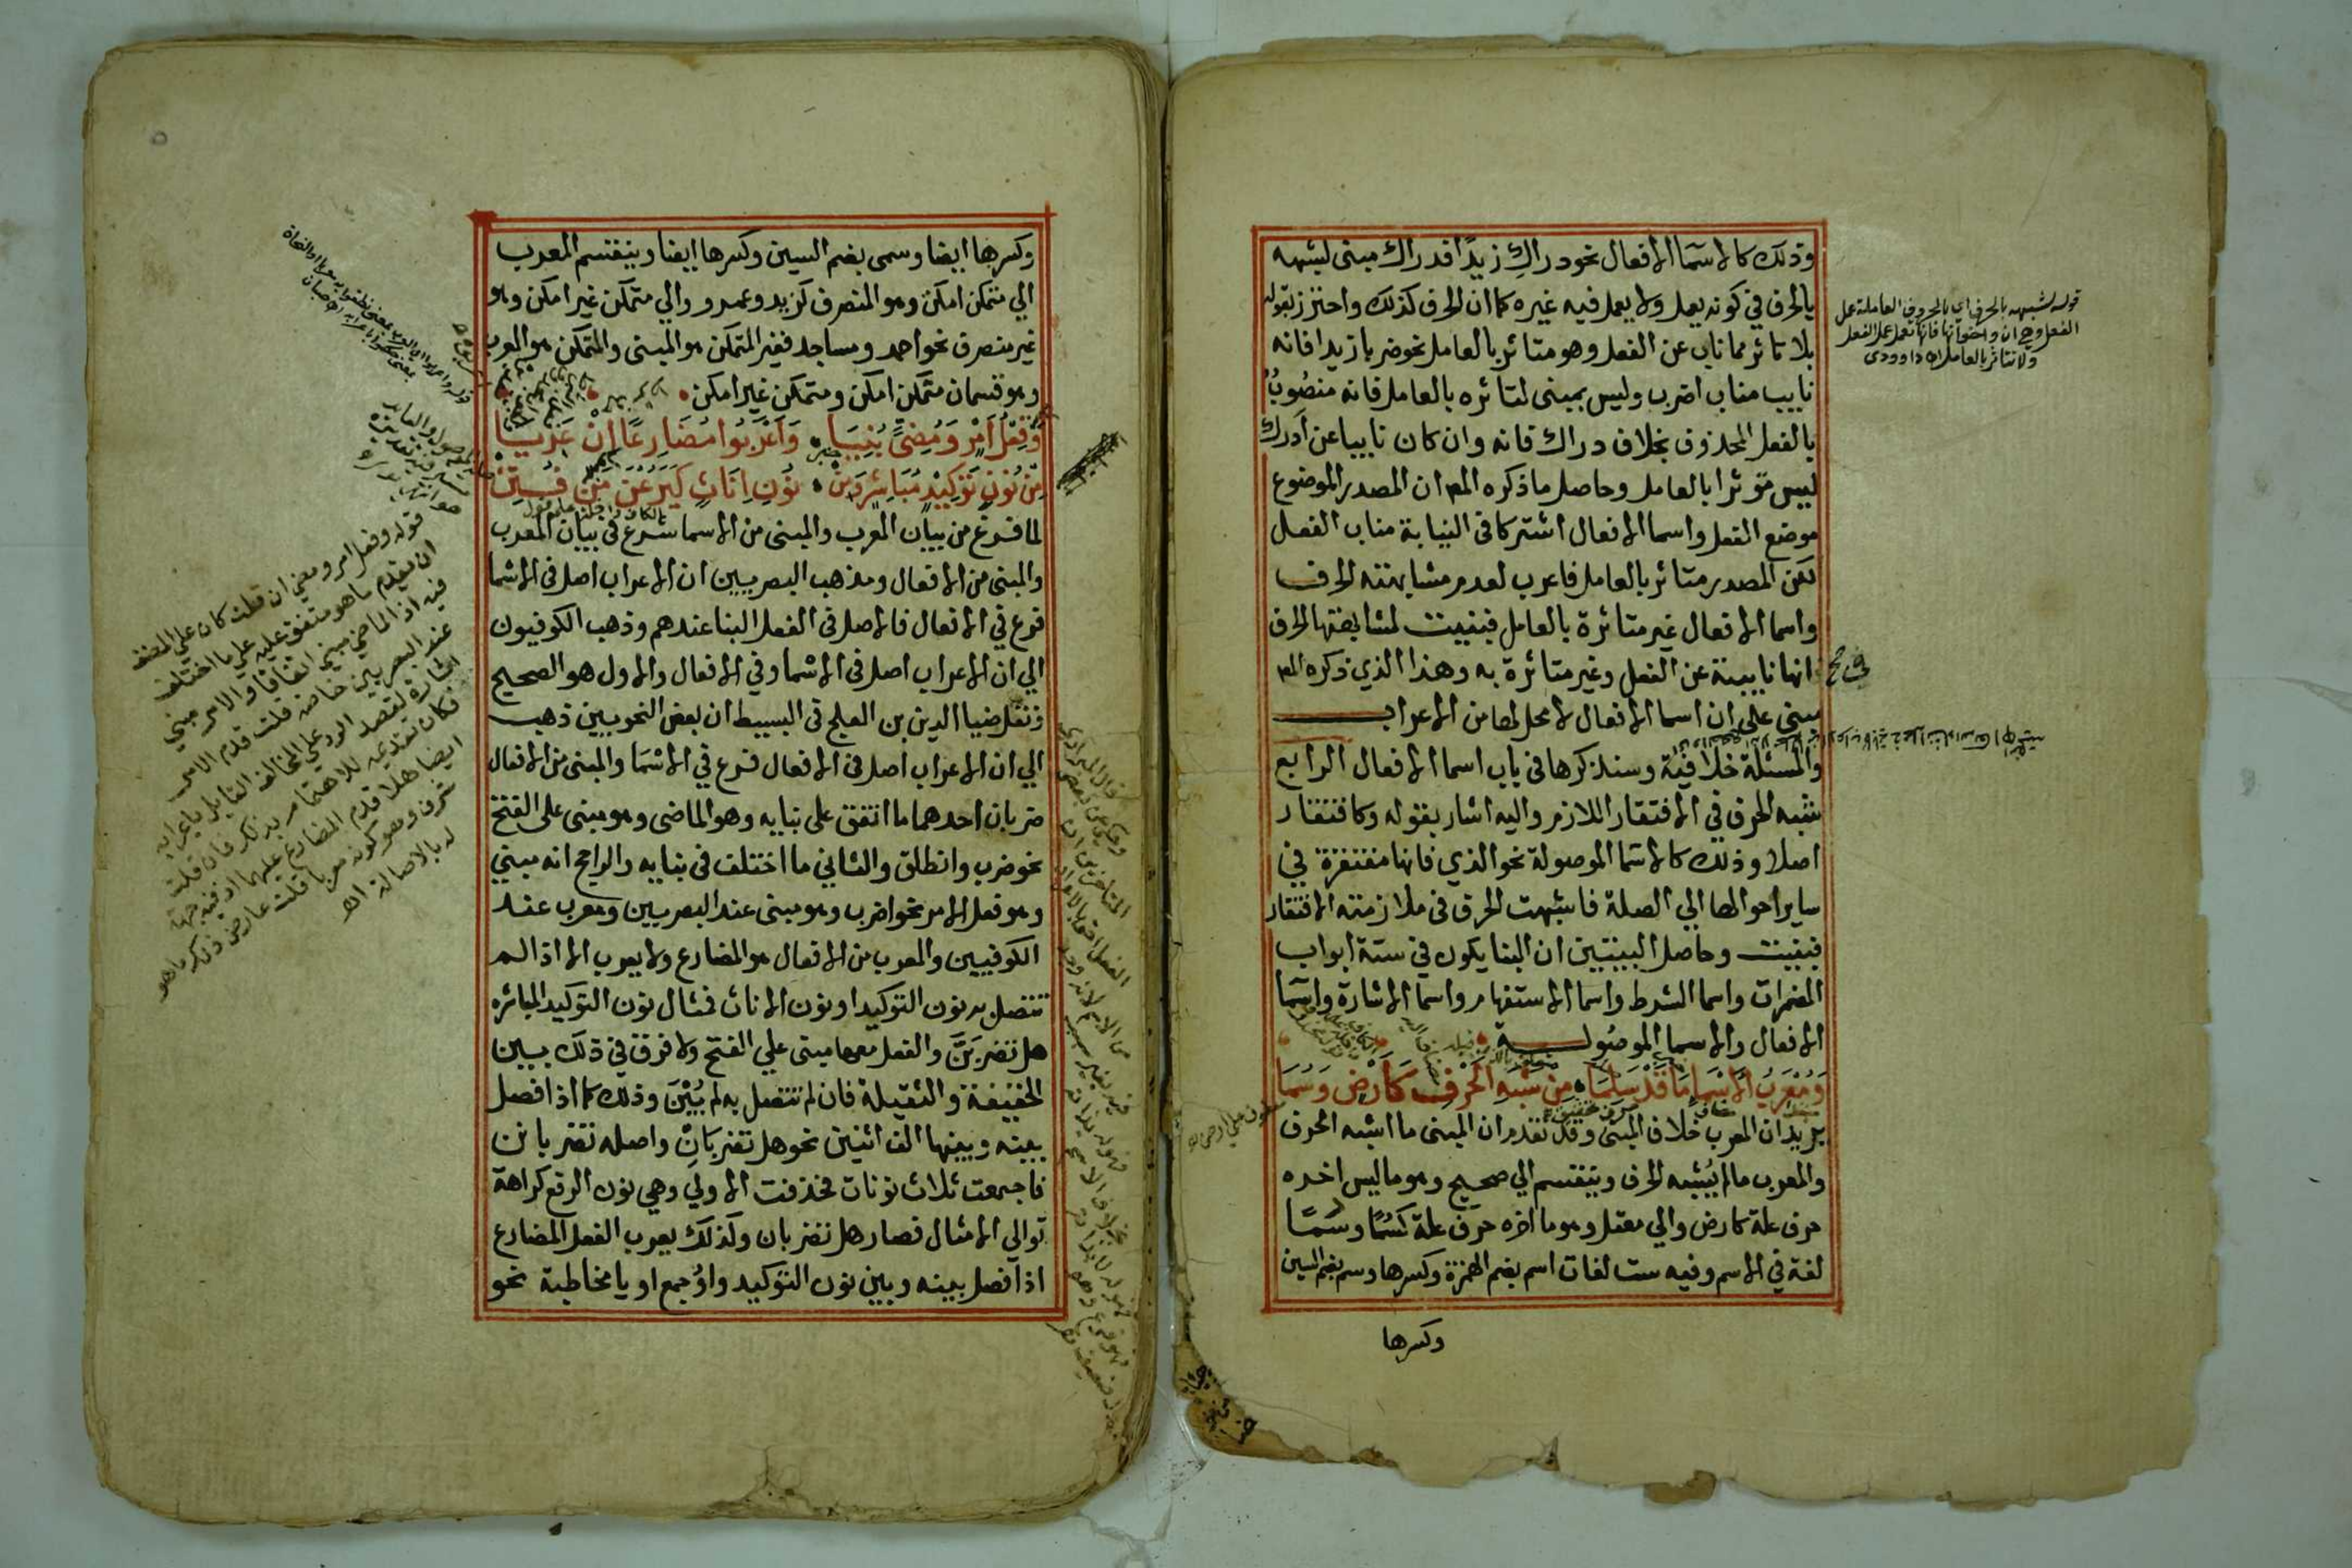 وذلك كالاسما الافعال نحو دراك زيدا فدراك مبنى لشبهه
بالحرف في كونه يعمل ولا يعمل فيه غيره كما ان الحرف كذلك واحترز بقوله
بلا تاثر مما ناب عن الفعل وهو متاثر بالعامل نحو ضربا زيدا فانه
نايب مناب اضرب وليس بمبنى لتاثره بالعامل فانه منصوب
بالفعل المحذوف بخلاف دراك فانه وان كان نايبا عن ادرك
ليس متوثرا بالعامل وحاصل ما ذكره المص ان المصدر الموضوع
موضع الفعل واسما الافعال اشتركا في النيابة مناب الفعل
لكن المصدر متاثر بالعامل فاعرب لعدم مشابهته الحرف
واسما الافعال غير متاثرة بالعامل فبنيت لمشابهتها الحرف
انها نايبة عن الفعل وغير متاثرة به وهذا الذي ذكره المص
مبنى على ان اسما الافعال لا محل لها من الاعراب
والمسئلة خلافية وسنذكرها في باب اسما الافعال الرابع
شبه الحرف في الافتقار اللازم واليه اشار بقوله وكافتقار
اصلا وذلك كالاسما الموصولة نحو الذي فانها مفتقرة في
ساير احوالها الي الصلة فاشبهت الحرف في ملازمته الافتقار
فبنيت وحاصل البيتين ان البنا يكون في ستة ابواب
المضمرات واسما الشرط واسما الاستفهام واسما الاشارة واسما
الافعال والاسما الموصولة
وَمُعْرَبُ الاَسْمَاءِ مَا قَدْ سَلِمَا مِن شَبَهِ الحَرْفِ كَأَرْضٍ وَسُمَا
يريد ان المعرب خلاف المبنى وقد تقدم ان المبنى ما اشبه الحرف
والمعرب ما لم يُشبه الحرف وينقسم الي صحيح وهو ما ليس اخره
حرف علة كارض والي معتل وهو ما اخره حرف علة كسُمًا وسُمًا
لغة في الاسم وفيه ست لغات اسم بضم الهمزة وكسرها وسم بضم السين
وكسرها
قوله لشبهه بالحرف اي بالحروف العاملة عمل
الفعل وهي ان واخواتها فانها تعمل عمل الفعل
ولا تتاثر بالعامل اه داوودى
في صح
وكسرها ايضا وسمى بضم السين وكسرها ايضا وينقسم المعرب
الي متمكن امكن وهو المنصرف كزيد وعمرو والي متمكن غير امكن وهو
غير منصرف نحو احمد ومساجد فغير المتمكن هو المبنى والمتمكن هو المعرب
وهو قسمان متمكن امكن ومتمكن غير امكن
وَفِعْلُ اَمْرٍ وَمُضِيٍّ بُنِيَا وَاَعْرَبُوا مُضَارِعًا اِنْ عَرِيَا
مِن نُوْنِ تَوْكِيْدٍ مُبَاشِرٍ وَمِن نُوْنِ اِنَاثٍ كَيَرُعْنَ مَنْ فُتِنْ
لما فرغ من بيان المعرب والمبنى من الاسما شرع في بيان المعرب
والمبنى من الافعال ومذهب البصريين ان الاعراب اصل في الاسما
فرع في الافعال فالاصل في الفعل البنا عندهم وذهب الكوفيون
الي ان الاعراب اصل في الاسما وفي الافعال والاول هو الصحيح
ونقل ضيا الدين بن العلج في البسيط ان بعض النحويين ذهب
الي ان الاعراب اصل في الافعال فرع في الاسما والمبنى من الافعال
ضربان احدهما ما اتفق على بنايه وهو الماضى وهو مبنى على الفتح
نحو ضرب وانطلق والثاني ما اختلف في بنايه والراجح انه مبني
وهو فعل الامر نحو اضرب وهو مبنى عند البصريين ومعرب عند
الكوفيين والمعرب من الافعال هو المضارع ولا يعرب الا اذا لم
تتصل به نون التوكيد او نون الاناث فمثال نون التوكيد المباشره
هل تضربَنَّ والفعل معها مبنى علي الفتح ولا فرق في ذلك بين
الخفيفة والثقيلة فان لم تتصل به لم يُبْنَ وذلك كما اذا فصل
بينه وبينها الف اثنين نحو هل تضربَانِّ واصله تضربانن
فاجتمعت ثلاث نونات فحذفت الاولي وهي نون الرفع كراهة
توالي الامثال فصار هل تضربان وكذلك يعرب الفعل المضارع
اذا فصل بينه وبين نون التوكيد واو جمع او يا مخاطبة نحو
قوله وفعل امر ومضي ان قلت كان علي المصنف
ان يقدم ما هو متفق عليه علي ما اختلف
فيه اذ الماضي مبني اتفاقا والامر مبني
عند البصريين خاصه قلت قدم الامر
اشارة لقصد الرد علي المخالف القايل باعرابه
فكان تقديمه للاهتمام بذلك فان قلت
ايضا هلا قدم المضارع عليهما اذ فيه جهة
شرف وهو كونه معربا قلت عارض ذلك ما هو
له بالاصالة اه